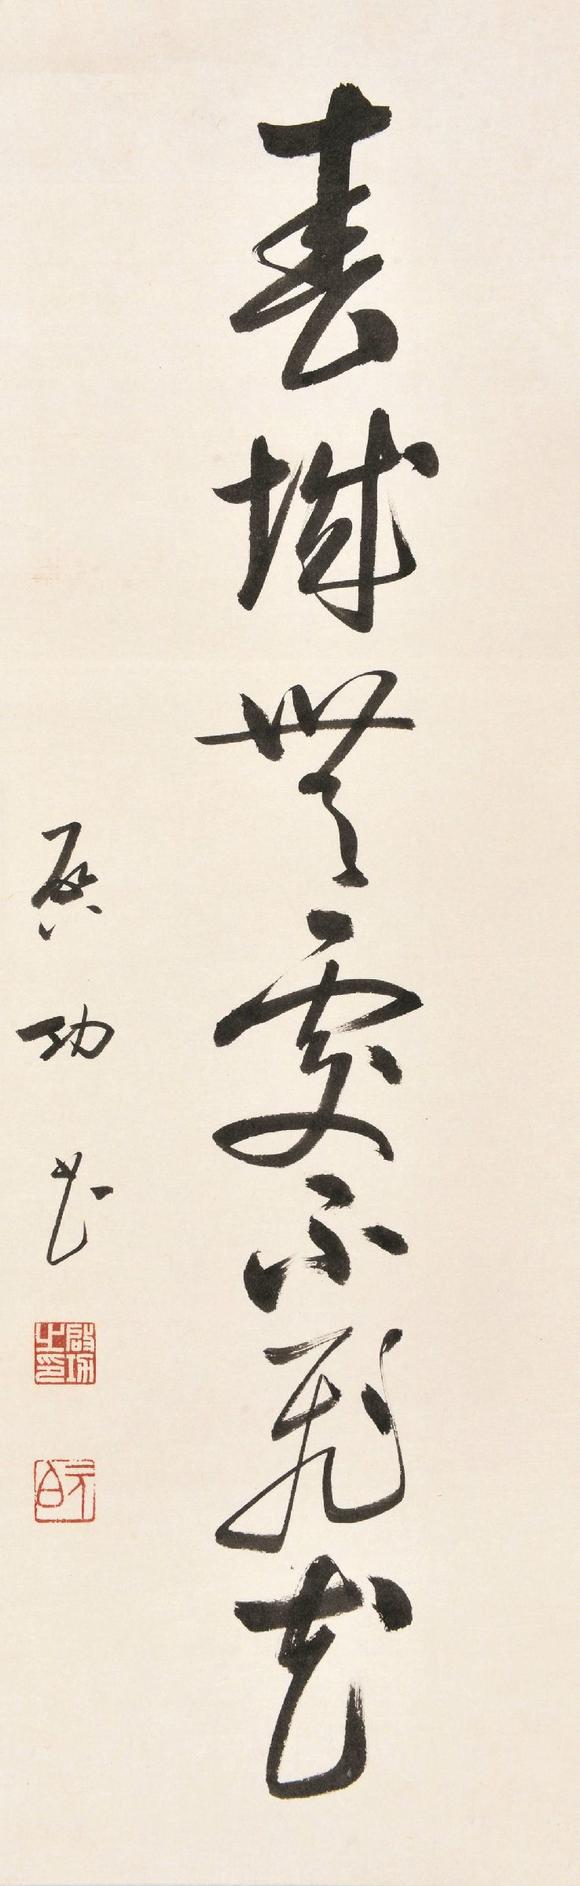 春城無處不飛花
啓功書
啟功之印
元白